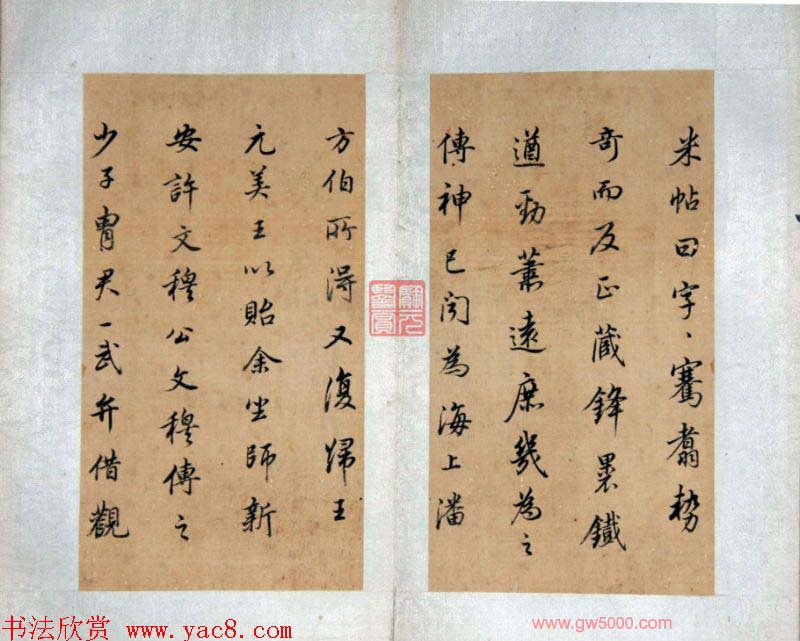 米帖曰字字騫翥勢
奇而反正藏鋒裹鐵
遒勁蕭遠庶幾為之
傳神已聞為海上潘
方伯所得又復歸王
元美王以貽余坐師新
安許文穆公文穆傳之
少子胄君一武弁借觀
書法欣賞 www.yac8.com
www.gw5000.com